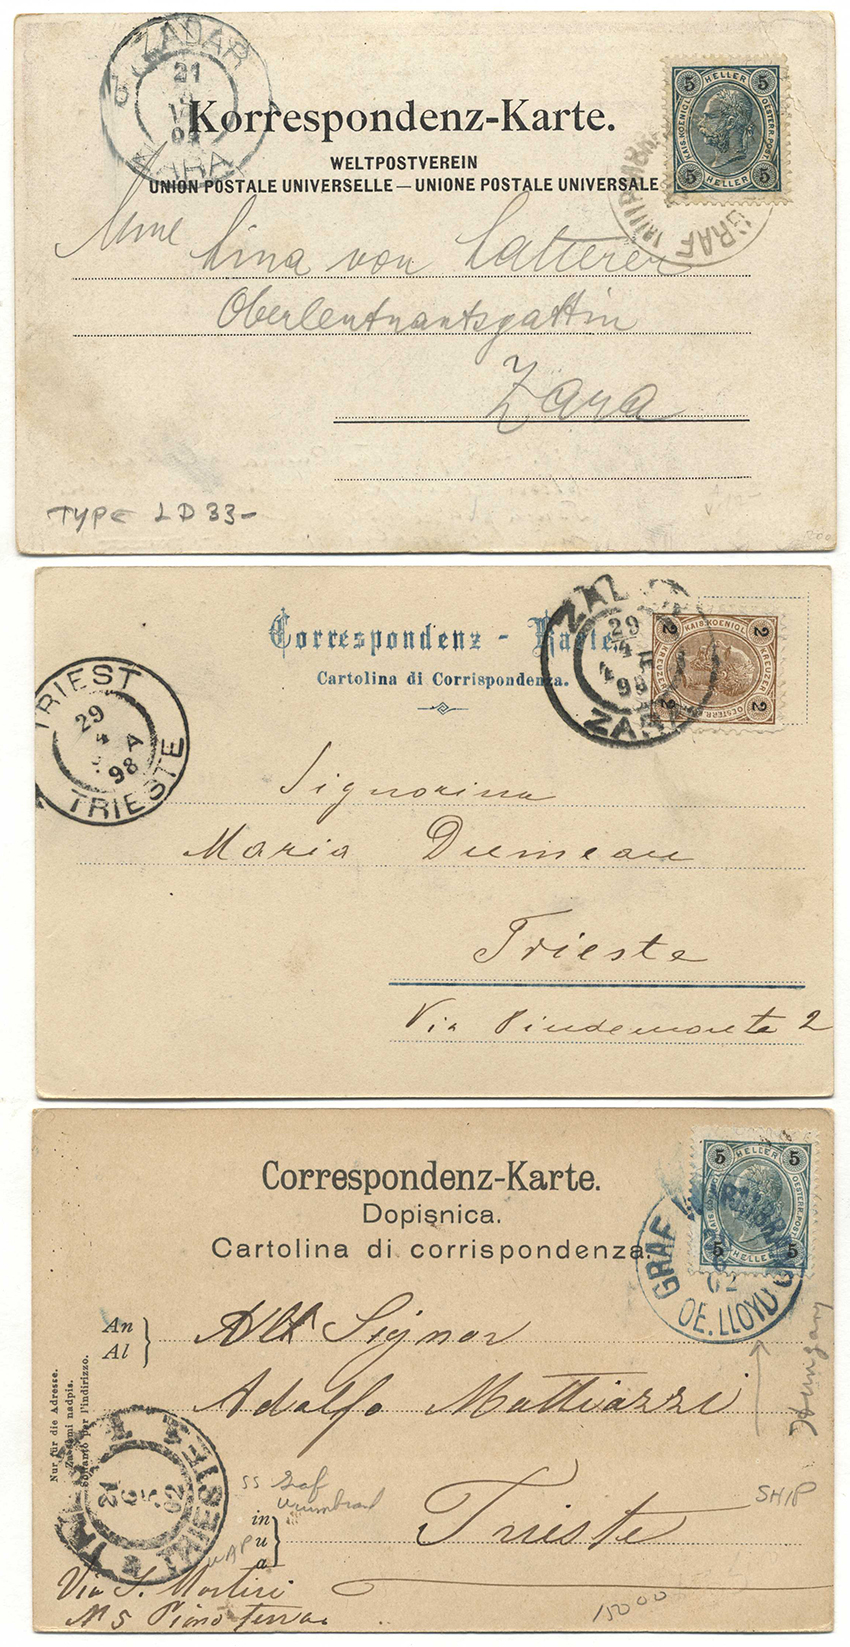 ZADAR
21
ZARA
Korrespondenz-Karte.
WELTPOSTVEREIN
UNION POSTALE UNIVERSELLE — UNIONE POSTALE UNIVERSALE
5 HELLER 5
KAIS. KOENIGL. OESTERR. POST
5 HELLER 5
GRAF WURMBRAND
Mme Lina von Catterer
Oberleutnantsgattin
Zara
TYPE LD33-
Correspondenz - Karte
Cartolina di Corrispondenza.
29
4
98
ZARA
2 KAIS. KOENIGL. 2
KREUZER KREUZER
2 OESTERR. POST 2
TRIEST
29
4 A
98
TRIESTE
Signorina
Maria Dumeau
Trieste
Via Pindemonte 2
Correspondenz-Karte.
Dopisnica.
Cartolina di corrispondenza.
5 HELLER 5
KAIS. KOENIGL. OESTERR. POST
5 HELLER 5
GRAF WURMBRAND
02
OE. LLOYD
An
Al
All Signor
Adolfo Mattiazzi
Nur für die Adresse.
Za sami nadpis.
Soltanto per l'indirizzo.
Hungary
SHIP
SS Graf
Wurmbrand
in
u
a
Trieste
TRIEST
21
02
TRIESTE
Via S. Martiri
N 5 Piano terra
15000